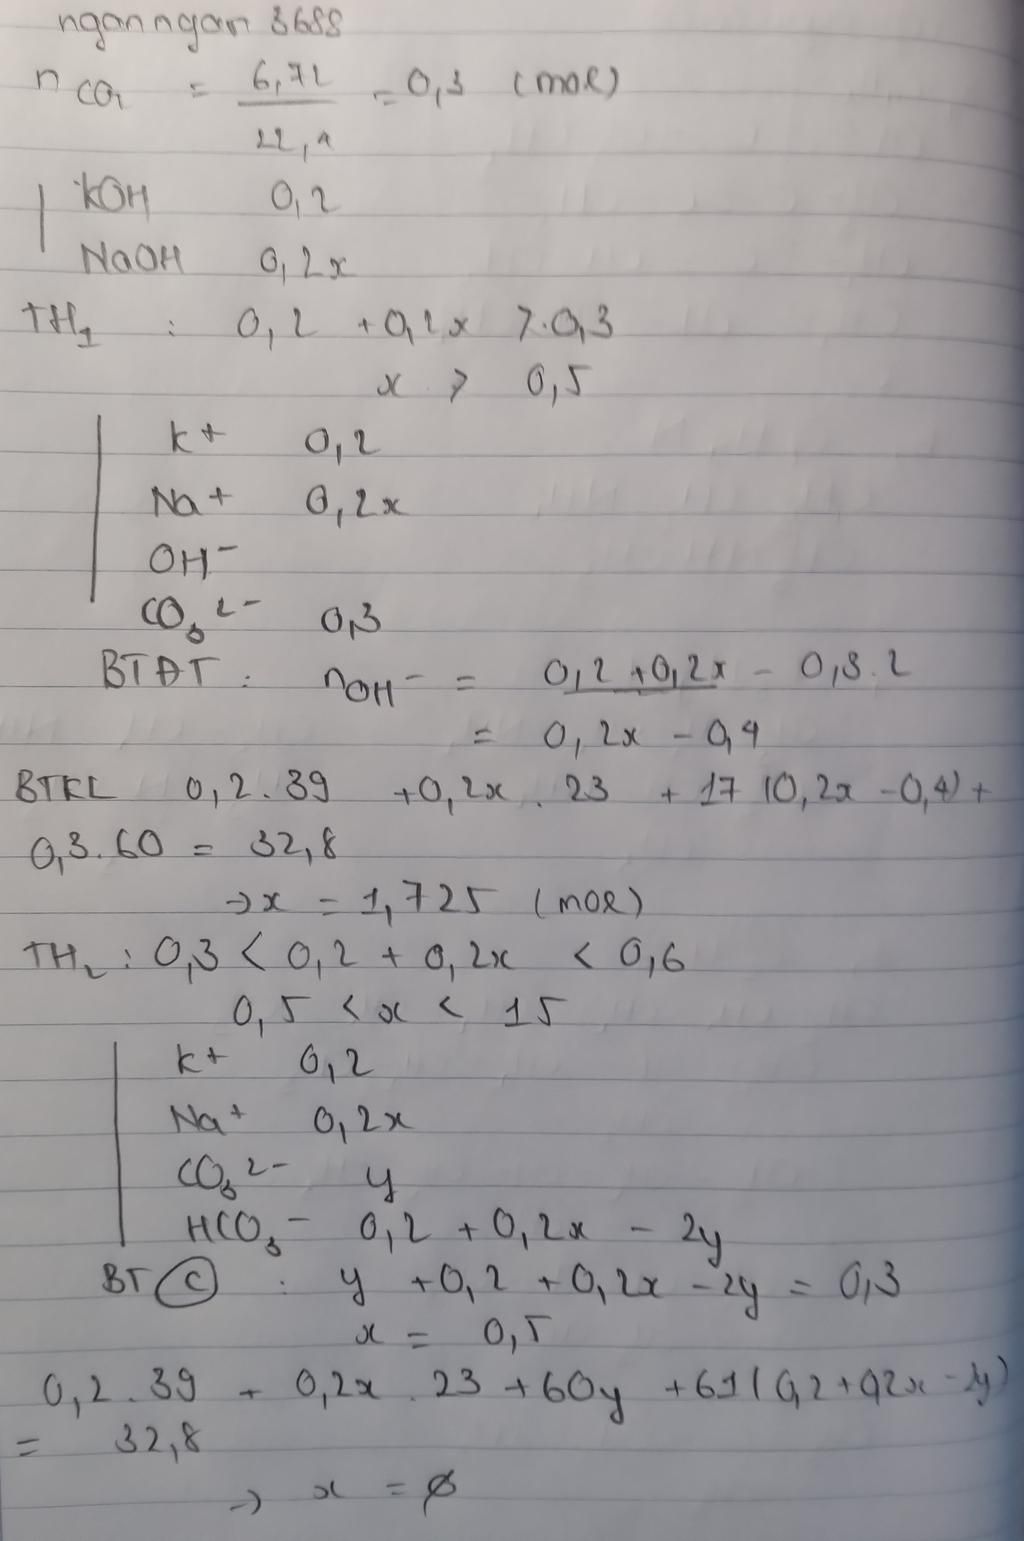 nganngan 3688
n CO2 = 6,72 / 22,4 = 0,3 (mol)
KOH 0,2
NaOH 0,2x
TH1 : 0,2 + 0,2x > 0,3
x > 0,5
K+ 0,2
Na+ 0,2x
OH-
CO3 2- 0,3
BTĐT : nOH- = 0,2 + 0,2x - 0,3.2
= 0,2x - 0,4
BTKL 0,2.39 + 0,2x . 23 + 17 (0,2x - 0,4) +
0,3.60 = 32,8
→ x = 1,725 (mol)
TH2 : 0,3 < 0,2 + 0,2x < 0,6
0,5 < x < 15
K+ 0,2
Na+ 0,2x
CO3 2- y
HCO3 - 0,2 + 0,2x - 2y
BT C : y + 0,2 + 0,2x - 2y = 0,3
x = 0,5
0,2.39 + 0,2x . 23 + 60y + 61(0,2+0,2x-2y)
= 32,8
→ x = ∅